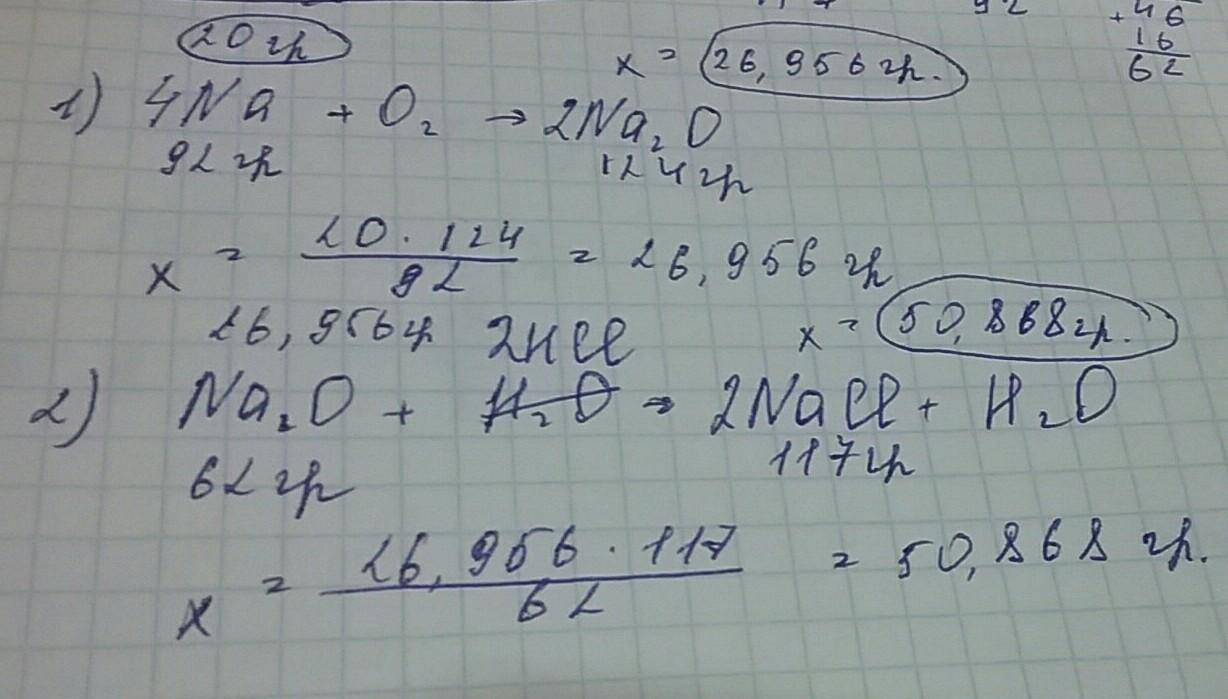 92 + 46
16
62
20 гр x = 26,956 гр.
1) 4Na + O₂ → 2Na₂O
92 гр 124 гр
x = 20 · 124 / 92 = 26,956 гр
26,956 гр 2HCl x = 50,868 гр.
2) Na₂O + H₂O → 2NaCl + H₂O
62 гр 117 гр
x = 26,956 · 117 / 62 = 50,868 гр.